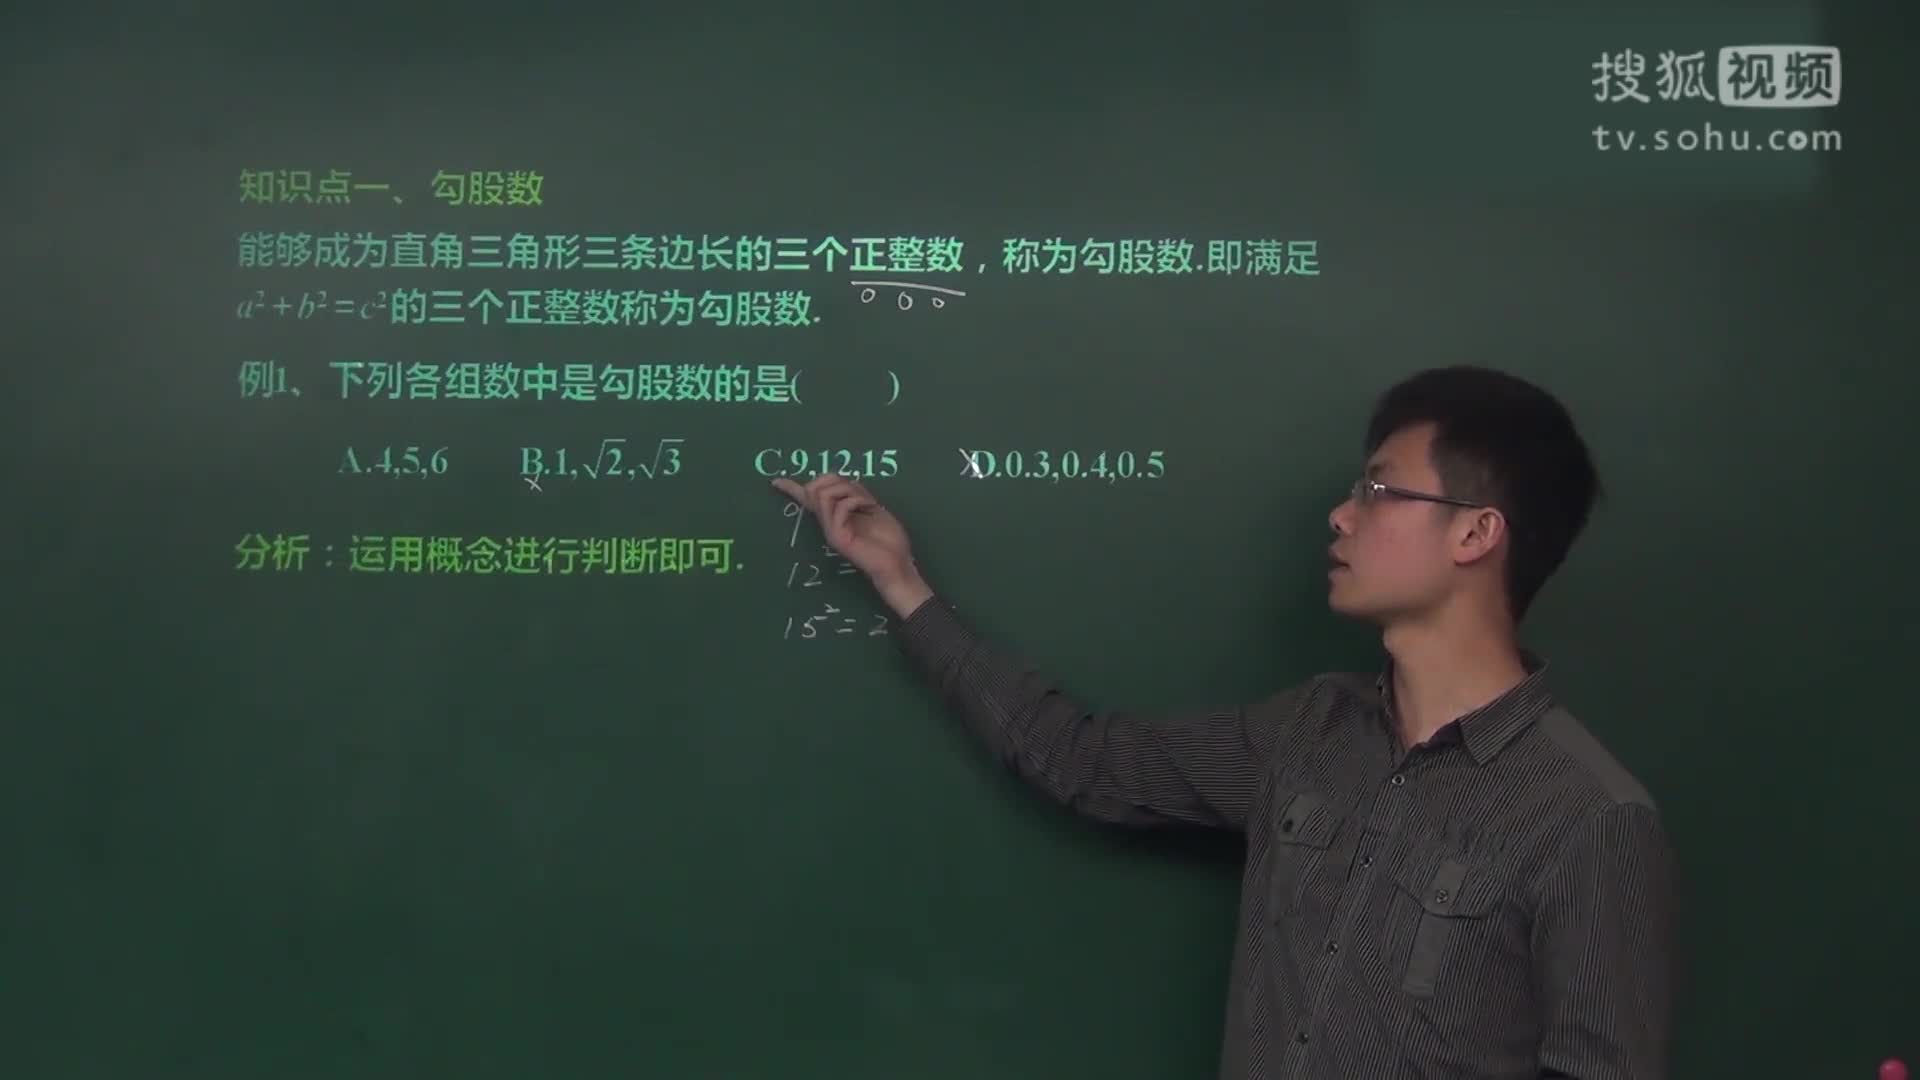 搜狐视频
tv.sohu.com
知识点一、勾股数
能够成为直角三角形三条边长的三个正整数，称为勾股数.即满足
a²+b²=c²的三个正整数称为勾股数.
例1、下列各组数中是勾股数的是(　　)
A.4,5,6　B.1,√2,√3　C.9,12,15　D.0.3,0.4,0.5
分析：运用概念进行判断即可.
9
12²=
15²=2